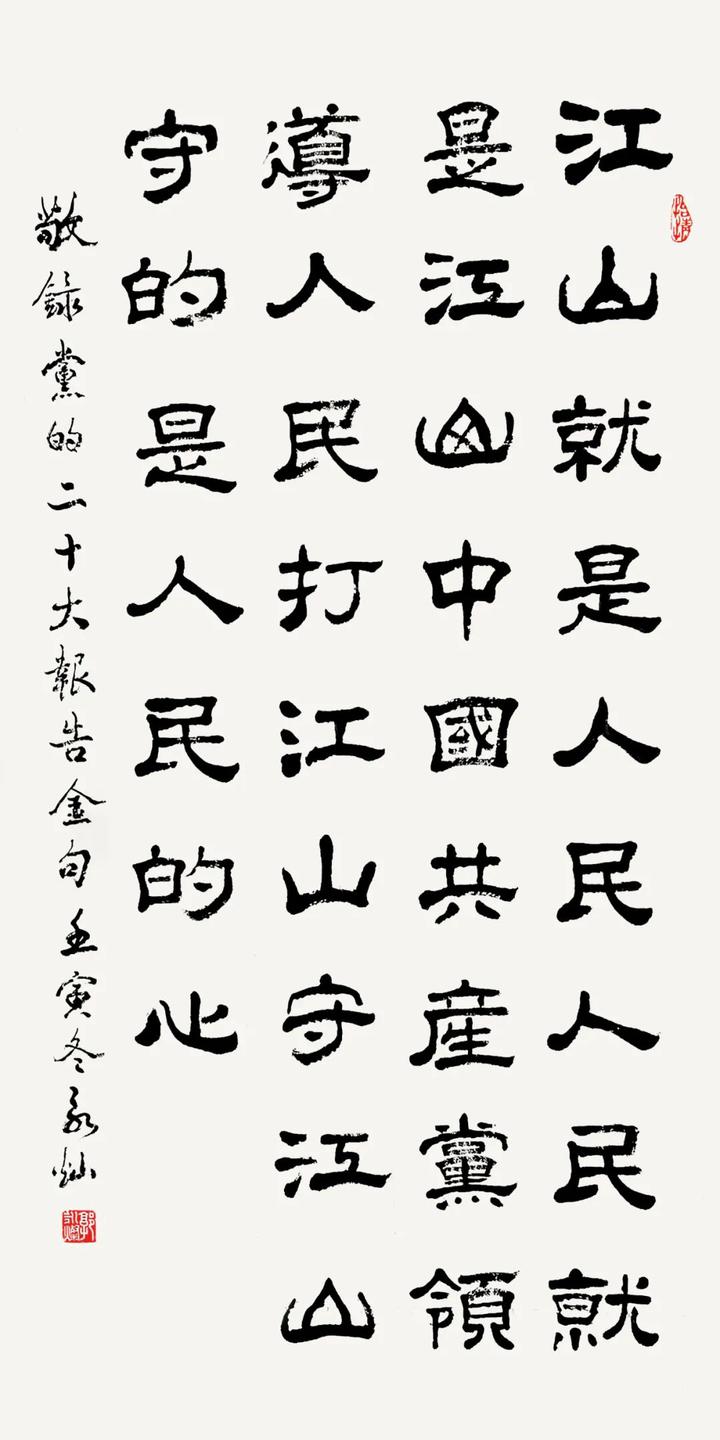 江山就是人民人民就
是江山中國共産黨領
導人民打江山守江山
守的是人民的心
敬録黨的二十大報告金句壬寅冬永灿